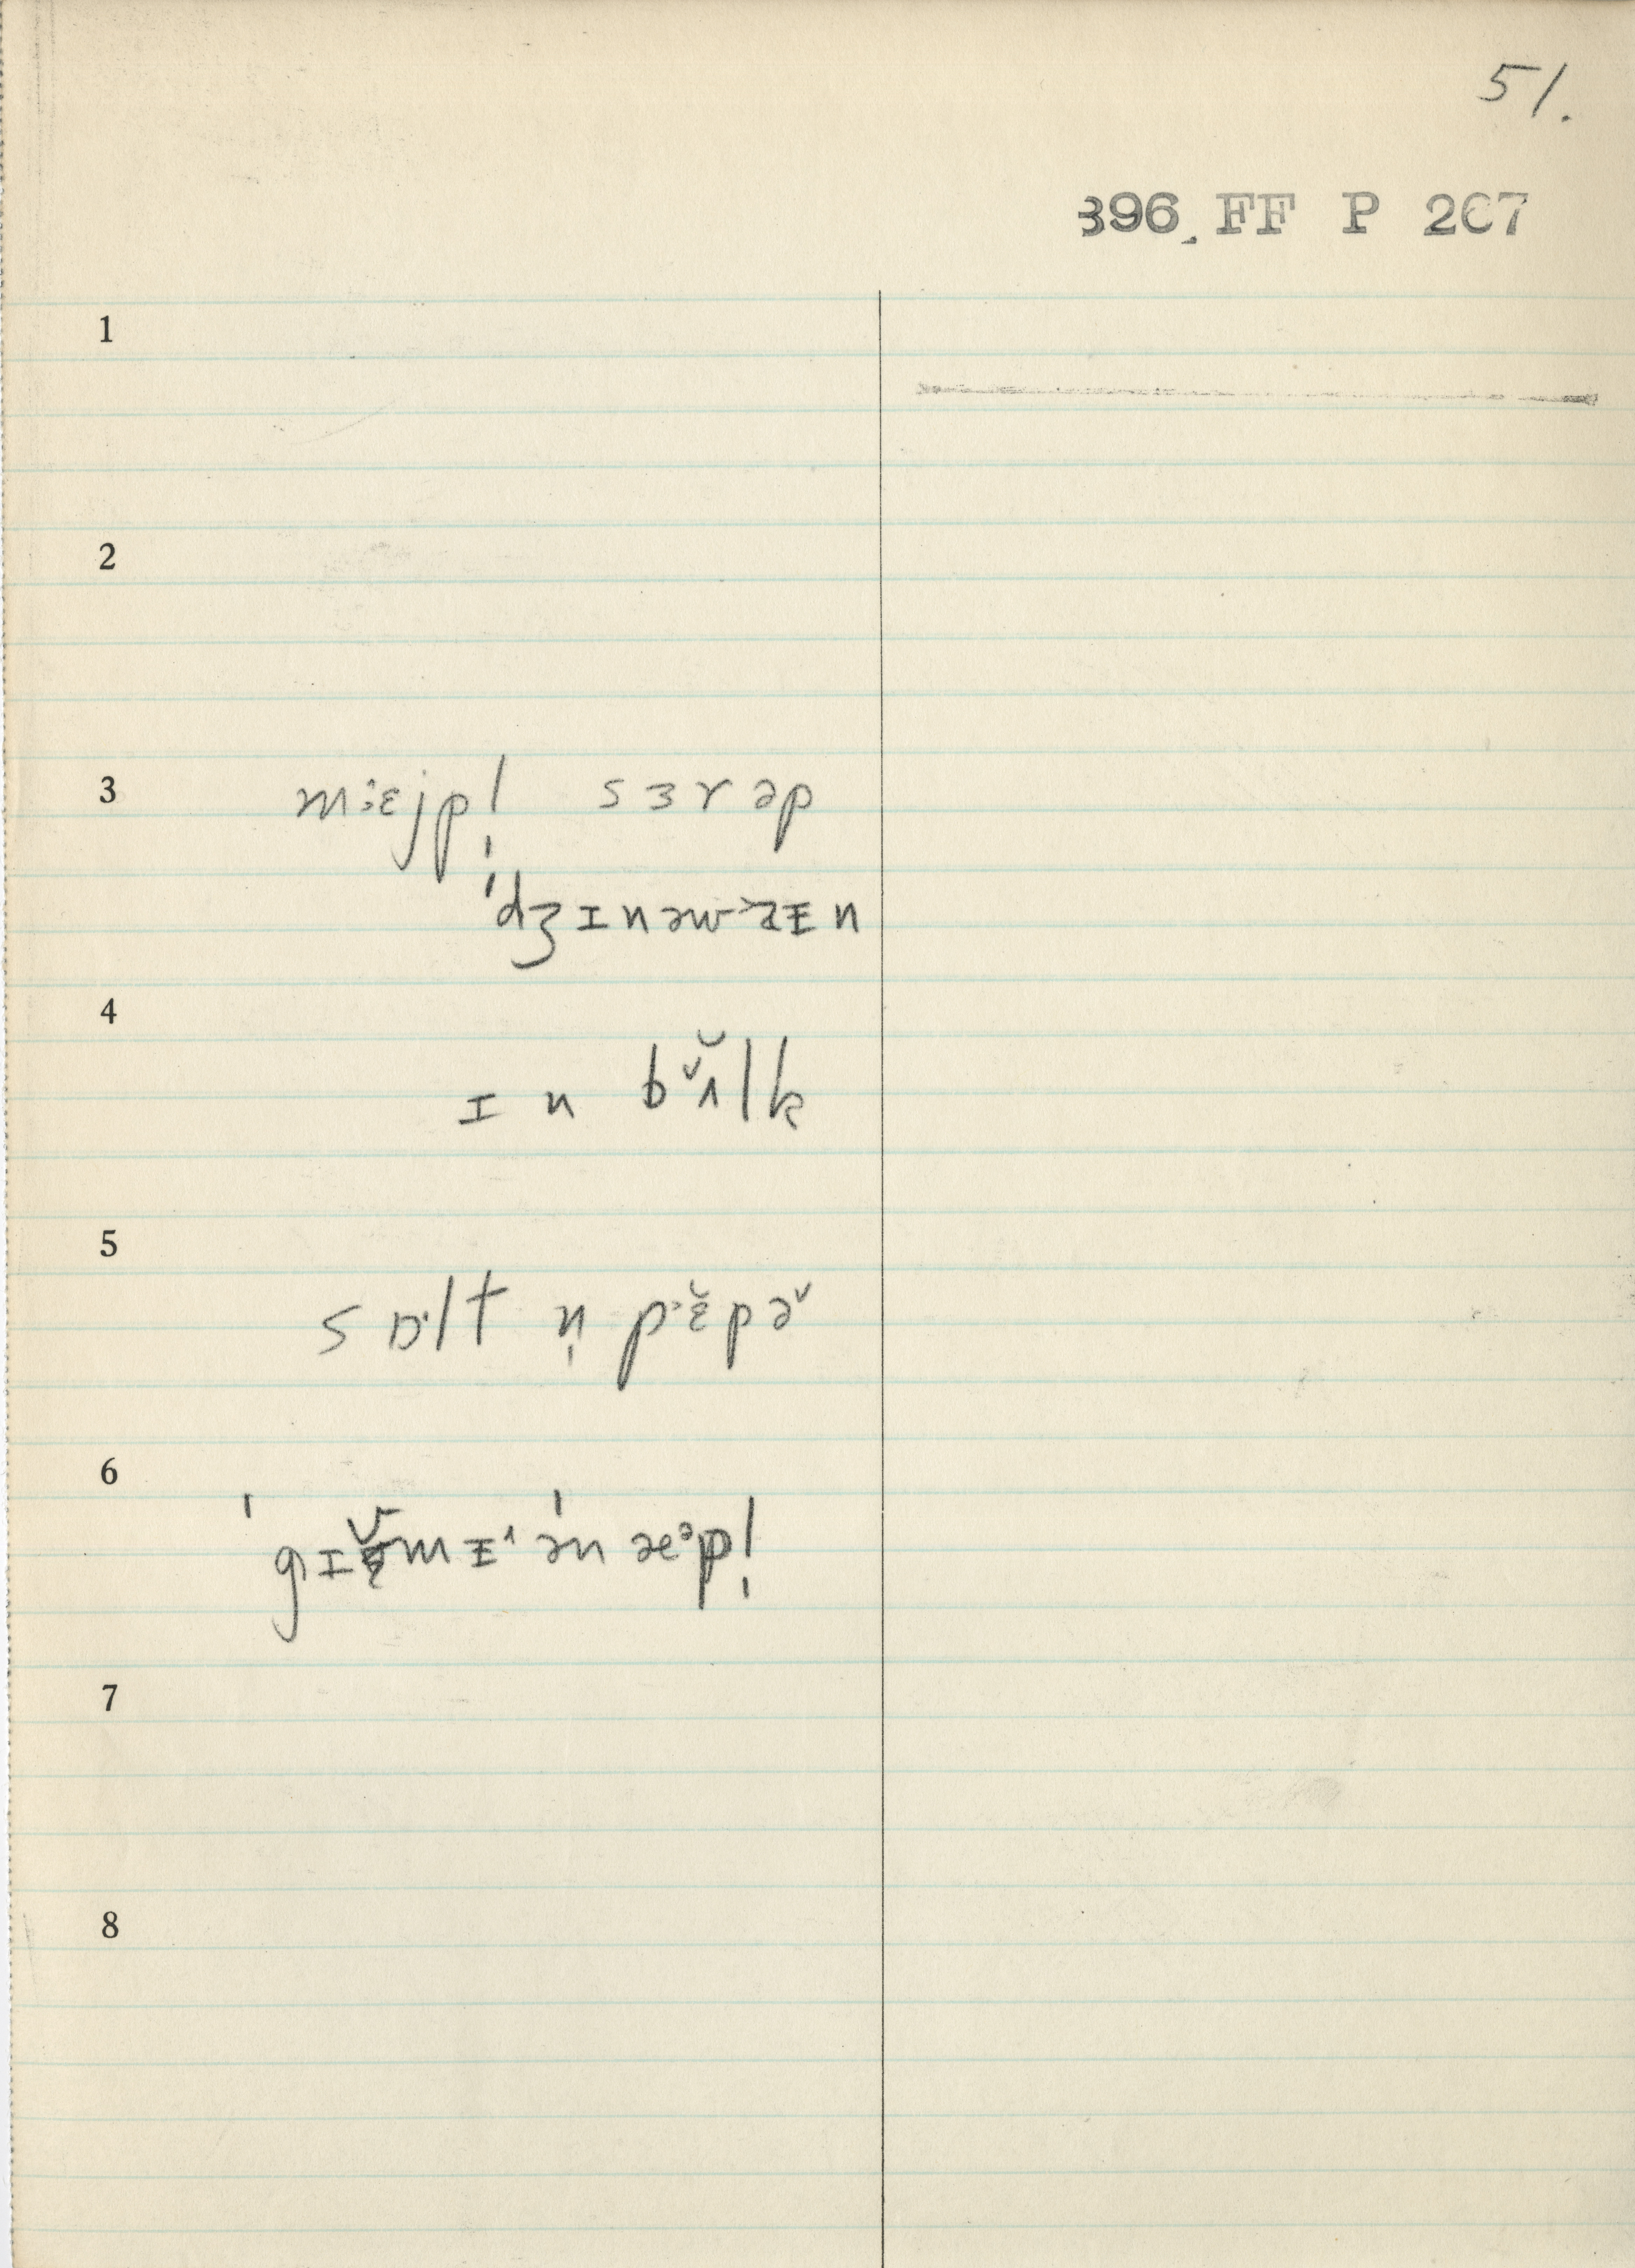 51.
396 FF P 267
1
2
3 m:ɛjpl̩ sɜrəp
ˈdʒɪnəwɪ̵n
4 ɪn bʌ̆lk
5 sɒ·lt n̩ pɛ̆pəˇ
6 ˈgɪmɪ̵ ˈən æᵊpl̩
7
8